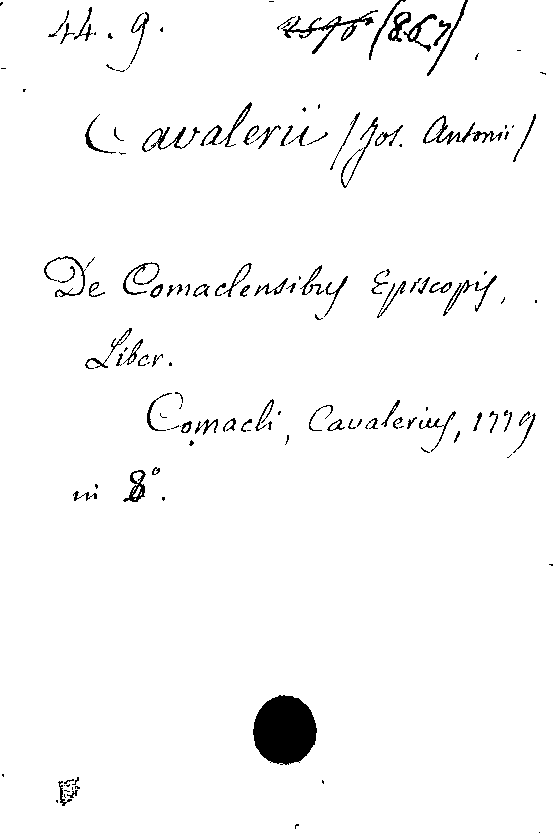 44. 9. (8.6.7)
Cavalerii (Jos. Antonii)
De Comaclensibus Episcopis,
Liber.
Comacli, Cavalerius, 1779
in 8°.